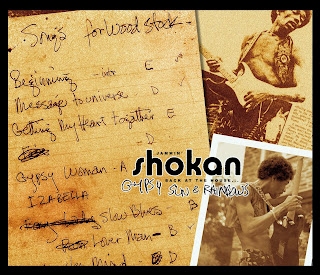 Songs for Wood Stock
Beginning - into E
Message to universe - D
Getting My Heart Together E
D
Gypsy Woman - A
IZABELLA
Slow blues
Lover Man - B
mind D
JAMMIN'
shokan
BACK AT THE HOUSE
GYPSY SUN & RAINBOWS